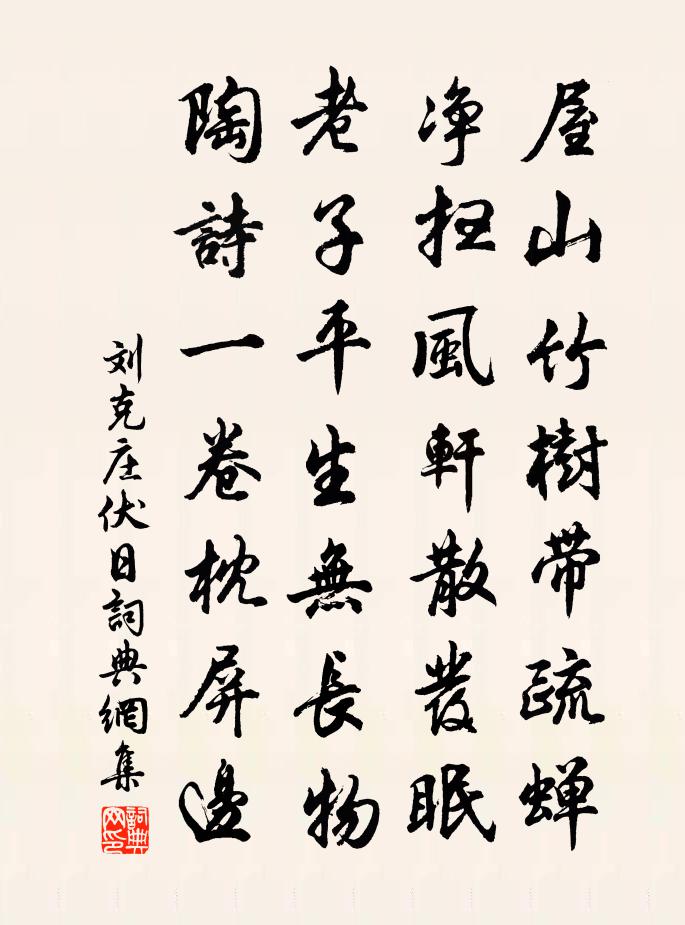 屋山竹樹帶疏蟬
净扫風軒散發眠
老子平生無長物
陶詩一卷枕屏邊
刘克庄伏日詞典網集
詞典网印